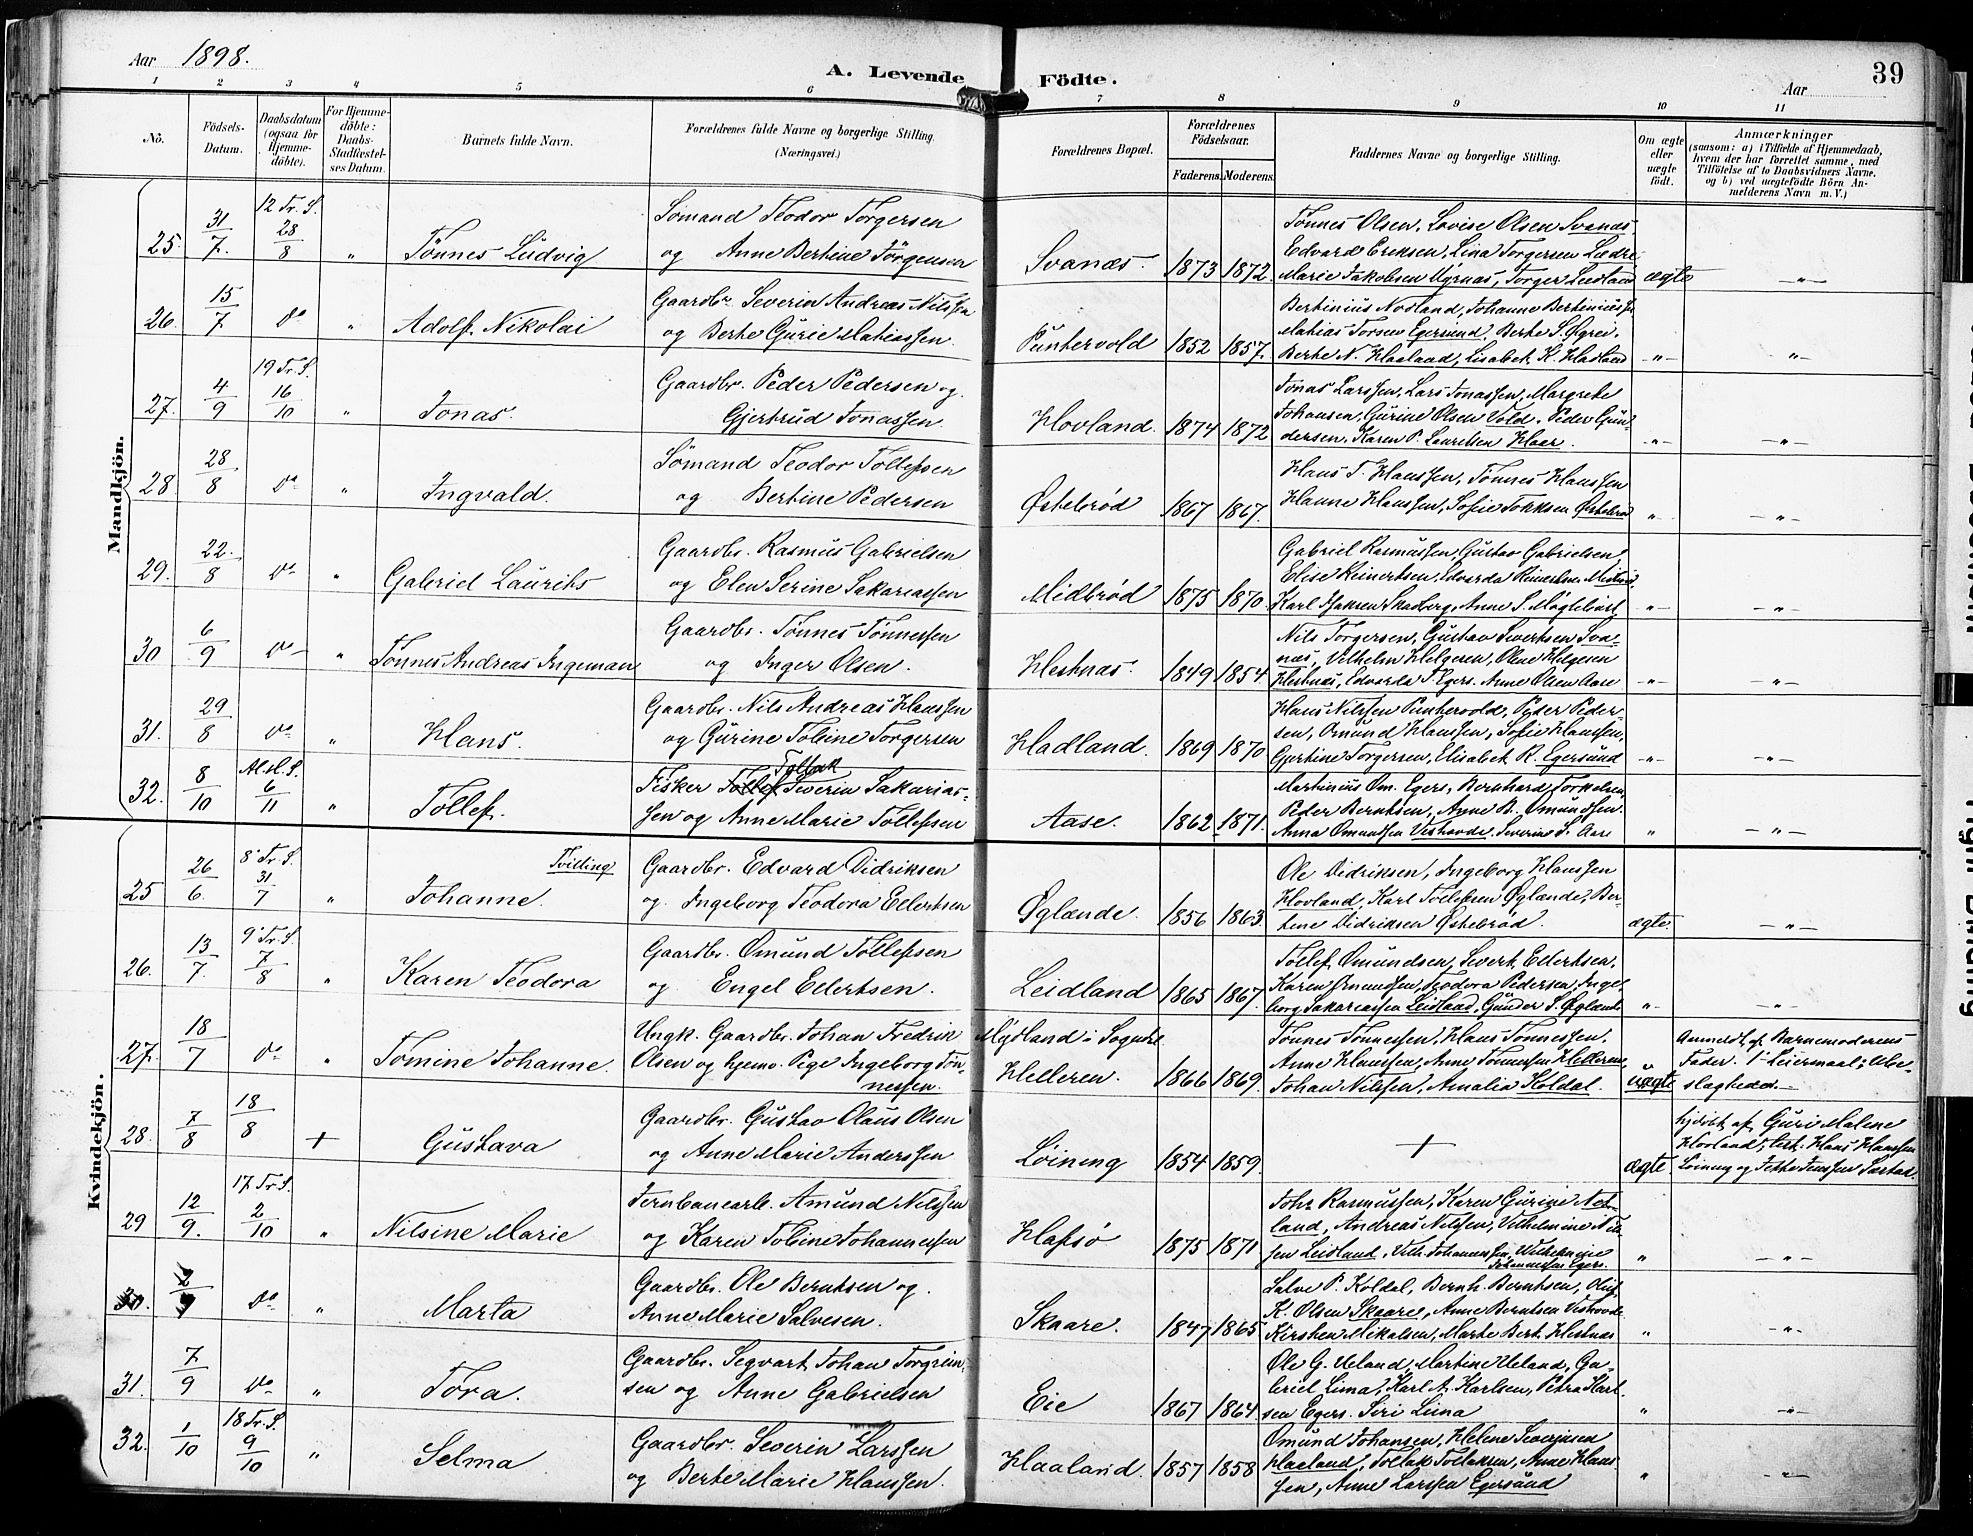 Aar 1898.
A. Levende Födte.
Aar
39
1 2 3 4 5 6 7 8 9 10 11
No.
Födsels-Datum.
Daabsdatum (ogsaa for Hjemme-döbte).
For Hjemme-döbte: Daabs-Stadfæstel-ses Datum.
Barnets fulde Navn.
Forældrenes fulde Navne og borgerlige Stilling.
(Næringsvei.)
Forældrenes Bopæl.
Forældrenes Födselsaar.
Faderens. Moderens.
Faddernes Navne og borgerlige Stilling.
Om ægte eller uægte födt.
Anmærkninger
(saasom: a) i Tilfælde af Hjemmedaab, hvem der har forrettet samme, med Tilföielse af to Daabsvidners Navne. og b) ved uægtefödte Börn An-melderens Navn m. V.)
Mandkjön.
25. 31/7. 12 Tr. S. 28/8 " Tønnes Ludvig
Sømand Teodor Torgersen
og Anne Bertine Jörgensen
Svanæs. 1873 1872.
Tønnes Olsen, Lovise Olsen Svanæs,
Edvard Eriksen, Lina Torgersen
Marie Jakobsen
ægte -"-
26. 15/7 do " Adolf Nikolai
Gaardbr. Severin Andreas Nilssen
og Berte Gurie Matiassen.
Puntervold 1852 1857.
Bertinius Nodland, Johanne
Matias Torsen Egersund, Berte S. Øgrei.
Berte N. Haaland, Lisabet K. Hadland
-"- -"-
27. 4/9 19 Tr. S. 16/10 " Jonas.
Gaardbr. Peder Pedersen og
Gjertrud Jonassen
Hovland. 1874 1872
Jonas Larssen, Lars Jonassen, Margrete
Johansen, Gurine Olsen Vold. Peder Gun-
dersen. Karen P. Lauritsen Haar.
-"- -"-
28 28/8 do " Ingvald.
Sømand Teodor Tollefsen
og Bertine Pedersen
Østebrød 1867 1867.
Hans T. Hanssen, Tønnes Hanssen
Hanne Hanssen, Sofie Østebrød
-"- -"-
29. 22./8 do " Gabriel Laurits
Gaardbr. Rasmus Gabrielsen
og Elen Serine Sakariassen
Midbrød 1875 1870.
Gabriel Rasmussen, Gustav Gabrielsen,
Elise Reinertsen, Edvarda
Karl Isaksen Skadberg, Anne S.
-"- -"-
30 6/9 do " Tønnes Andreas Ingeman
Gaardbr. Tønnes Tønnessen
og Inger Olsen.
Hestnæs. 1849 1854
Nils Torgersen, Gustav Sivertsen Sva-
næs, Vilhelm Helgesen, Olene Helgesen
Hestnæs, Edvarda T. Egers. Anne Olsen Aase
-"- -"-
31. 29/8 do " Hans.
Gaardbr. Nils Andreas Hanssen
og Gurine Tobine Torgersen
Hadland. 1869 1870
Hans Nilssen Puntervold, Peder Peder-
sen, Omund Hanssen, Sofie Hanssen,
Gjertine Torgersen, Elisabet R. Egersund
-"- -"-
32. 8/10 Al. H. S. 6/11 " Tollef.
Fisker Tollef Tollak Severin Sakarias-
sen og Anne Marie Tollefsen
Aase. 1862 1871.
Martinius Om. Egers, Bernhard Torkelsen,
Peder Berntsen, Anne B. Omundsen.
Anna Omundsen Veshovde. Severine S. Aase
" -"-
Kvindekjön.
25 26/6. 8' Tr. S. 31/7 " Johanne. Tvilling
Gaardbr. Edvard Didriksen
og Ingeborg Teodora Edertsen
Øglænde. 1856 1863.
Ole Didriksen, Ingeborg Hanssen
Hovland, Karl Tollefsen Øglænde, Ber-
tine Didriksen Østebrød.
ægte. -"-
26. 13/7. 9' Tr. S. 7/8 " Karen Teodora
Gaardbr. Omund Tollefsen
og Engel Edertsen.
Leidland 1865 1867.
Tollef Omundsen, Sivert Edertsen,
Karen Omundsen, Teodora Pedersen, Inge-
borg Sakariassen Leidland, Gunder S. Øglænde
"- -"-
27. 18/7 do " Tomine Johanne.
Ungk. Gaardbr. Johan Fredrik
Olsen og hjemv. Pige Ingeborg Tøn-
nessen.
Mydland i Sogndal
Helleren. 1866 1869.
Tønnes Tønnessen, Hans Tønnessen,
Anne Hanssen, Anne Tønnessen Helleren,
Johan Nilssen, Amalia Koldal.
uægte
Anmeldt af Barnemoderens
Fader. 1' Leiersmaal; Ube-
slægtede.-
28. 7/8 18/8 + Gustava
Gaardbr. Gustav Olaus Olsen
og Anne Marie Anderssen
Løining 1854 1859.
+
ægte
hjdöbt af Guri Malene
Hovland; Test: Hans Hanssen
Løining og Jenssen
29 12/9. 17. Tr. S. 2/10 " Nilsine Marie
Jernbanearb. Amund Nilssen
og Karen Tobine Johannessen
Hafsø 1875 1871
Johs Rasmussen, Karen Gurine Net-
land, Andreas Nilssen, Vilhelmine Nil-
sen Leidland, Vilh. Johannessen, Wilhelmine
Johannessen Egers.
" -"-
30. 2/9 do " Marta
Gaardbr. Ole Berntsen og
Anne Marie Salvesen.
Skaare. 1847 1865
Salve P. Koldal, Bernh. Berntsen,
K. Olsen Skaare, Anne Berntsen Veshovde
Kirsten Mikalsen, Marte Bert. Hestnæs
" -"-
31. 7/9 do " Tora.
Gaardbr. Segvart Johan Torgrim-
sen og Anne Gabrielsen
Eie 1867 1864
Ole G. Ueland, Martine Ueland, Ga-
briel Lima, Karl A. Karlsen, Petra Karl-
sen Egers. Siri Lima
" -"-
32. 1/10 18 Tr. S. 9/10 " Selma
Gaardbr. Severin Larssen
og Berte Marie Hanssen.
Haaland. 1857 1858
Omund Johansen, Helene Severinsen
Haaland, Tollak Tollaksen, Anne Hans-
sen, Anne Larssen Egersund
" -"-